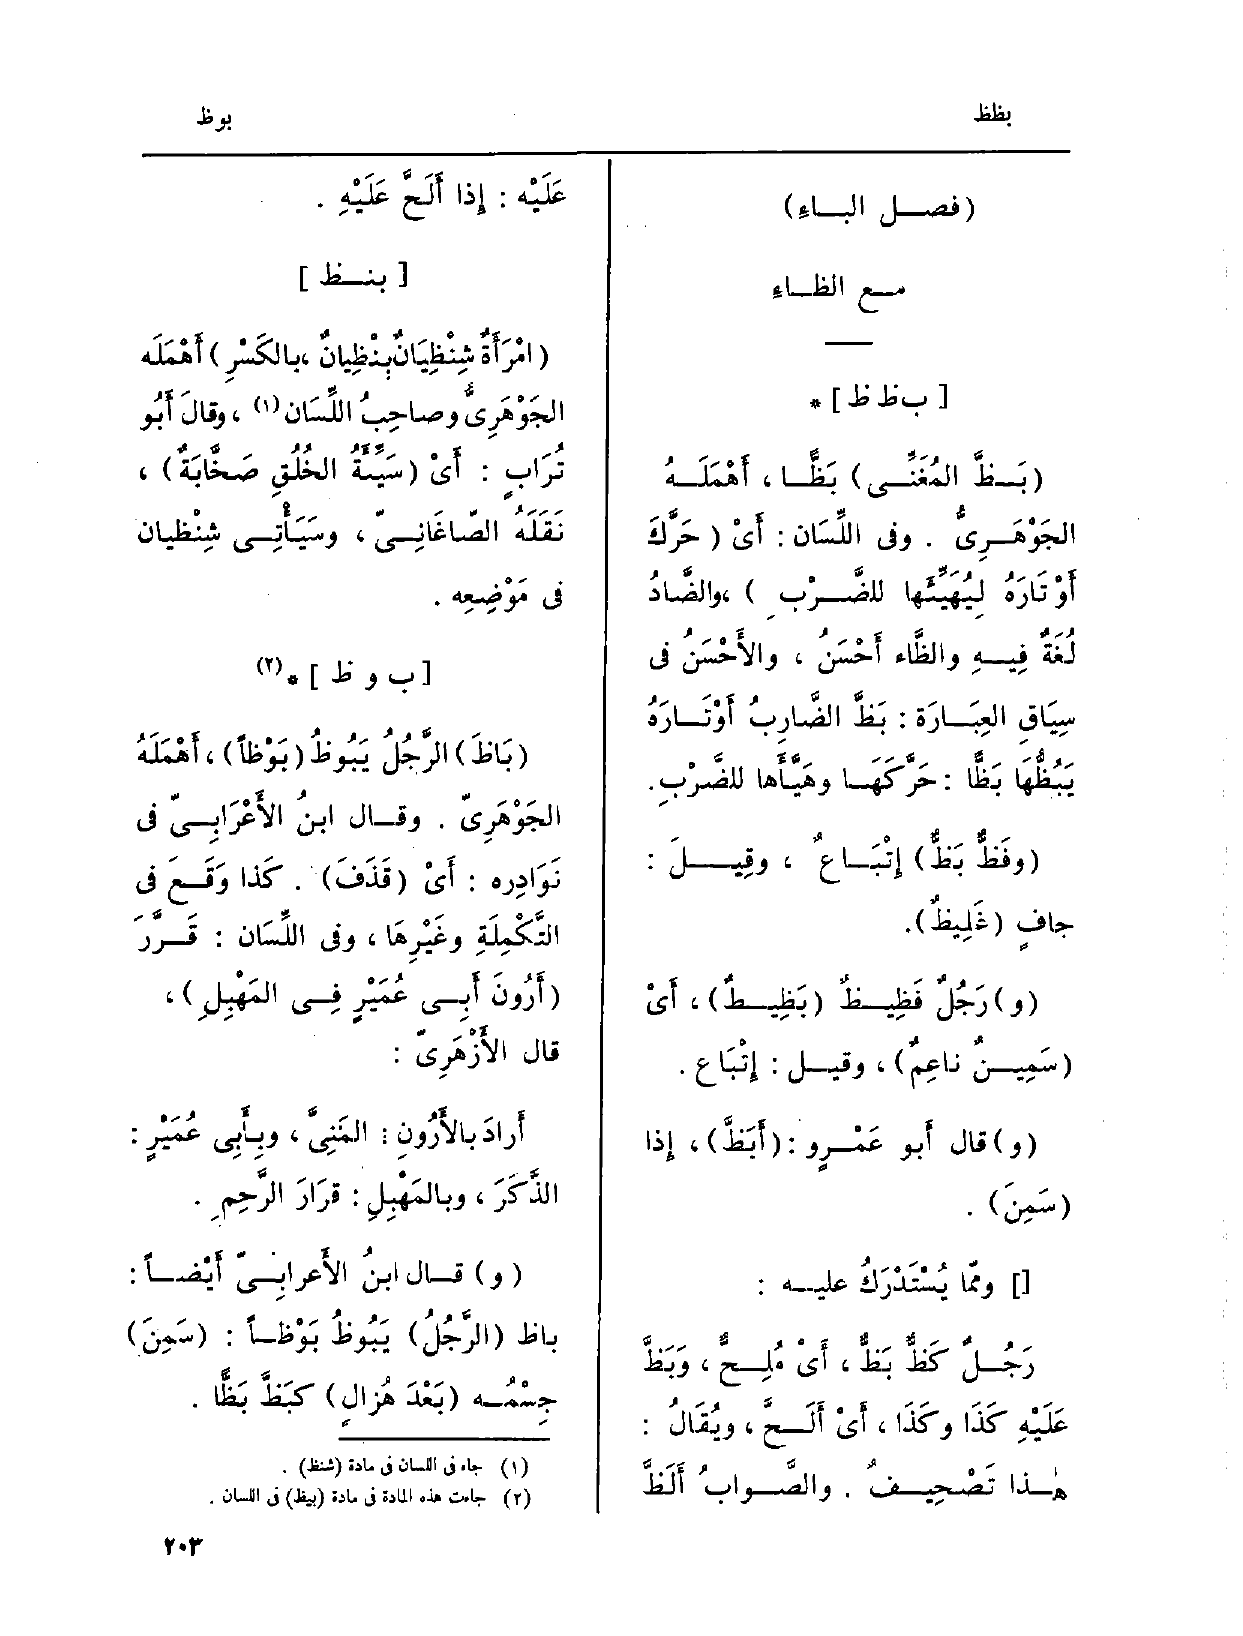 بظظ
بوظ
(فصــل البــاء)
مــع الظــاء
[ ب ظ ظ ] *
(بَــظَّ المُغَنِّــى) بَظًّــا ، أَهْمَلَــهُ
الجَوْهَــرِىُّ . وفى اللِّسَان : أَىْ ( حَرَّكَ
أَوْتَارَهُ لِيُهَيِّئَها للضَّــرْبِ ) ،والضَّادُ
لُغَةٌ فِيــهِ والظَّاء أَحْسَنُ ، والأَحْسَنُ فى
سِيَاقِ العِبَــارَة : بَظَّ الضَّارِبُ أَوْتَــارَهُ
يَبُظُّهَا بَظًّا : حَرَّكَهَــا وهَيَّأَها للضَّرْبِ.
(وفَظٌّ بَظٌّ) إِتْبَــاعٌ ، وقِيــلَ :
جافٍ (غَلِيظٌ).
(و) رَجُلٌ فَظِيــظٌ (بَظِيــظٌ) ، أَىْ
(سَمِيــنٌ ناعِمٌ) ، وقيــل : إِتْبَاع .
(و) قال أَبو عَمْــرٍو : (أَبَظَّ) ، إِذا
(سَمِنَ) .
[] ومّا يُسْتَدْرَكُ عليــه :
رَجُــلٌ كَظٌّ بَظٌّ ، أَىْ مُلِــحٌّ ، وَبَظَّ
عَلَيْهِ كَذَا وكَذَا ، أَىْ أَلَــحَّ ، ويُقَالُ :
هٰــذا تَصْحِيــفٌ . والصَّــوابُ أَلَظَّ
عَلَيْه : إِذا أَلَحَّ عَلَيْهِ .
[ بنــظ ]
(امْرَأَةٌ شِنْظِيَانٌ بِنْظِيانٌ ،بالكَسْرِ) أَهْمَلَه
الجَوْهَرِىُّ وصاحِبُ اللِّسَان (١) ، وقالَ أَبُو
تُرَابٍ : أَىْ (سَيِّئَةُ الخُلُقِ صَخَّابَةٌ) ،
نَقَلَهُ الصّاغَانِــىّ ، وسَيَأْتِــى شِنْظيان
فى مَوْضِعِه .
[ ب و ظ ] * (٢)
(بَاظَ) الرَّجُلُ يَبُوظُ (بَوْظاً) ، أَهْمَلَهُ
الجَوْهَرِىّ . وقــال ابنُ الأَعْرَابِــىّ فى
نَوَادِره : أَىْ (قَذَفَ) . كَذا وَقَــعَ فى
التَّكْمِلَةِ وغَيْرِهَا ، وفى اللِّسَان : قَــرَّرَ
(أَرُونَ أَبِــى عُمَيْرٍ فِــى المَهْبِلِ) ،
قال الأَزْهَرِىّ :
أَرادَ بالأَرُونِ : المَنِىَّ ، وبِأَبِى عُمَيْرٍ :
الذَّكَرَ ، وبالمَهْبِلِ : قرَارَ الرَّحِمِ .
(و) قــال ابنُ الأَعرابِــىّ أَيْضــاً :
باظ (الرَّجُلُ) يَبُوظُ بَوْظــاً : (سَمِنَ)
جِسْمُــه (بَعْدَ هُزالٍ) كَبَظَّ بَظًّا .
(١) جاء فى اللسان فى مادة (شنظ) .
(٢) جاءت هذه المادة فى مادة (بيظ) فى اللسان .
٢٠٣